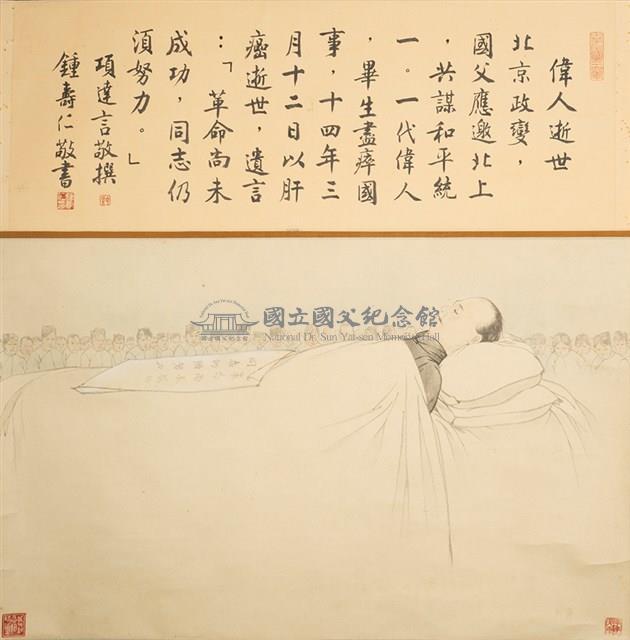 偉人逝世
北京政變，
國父應邀北上
，共謀和平統
一。一代偉人
，畢生盡瘁國
事，十四年三
月十二日以肝
癌逝世，遺言
：「革命尚未
成功，同志仍
須努力。」
項達言敬撰
鍾壽仁敬書
國立國父紀念館
National Dr. Sun Yat-sen Memorial Hall